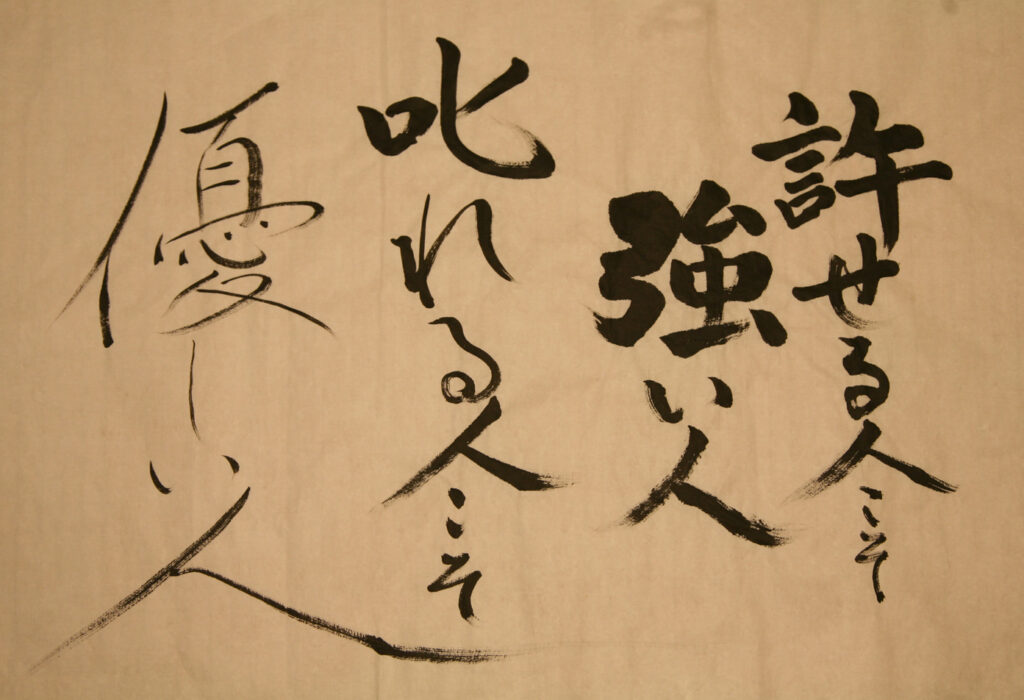 許せる人こそ
強い人
叱れる人こそ
優しい人